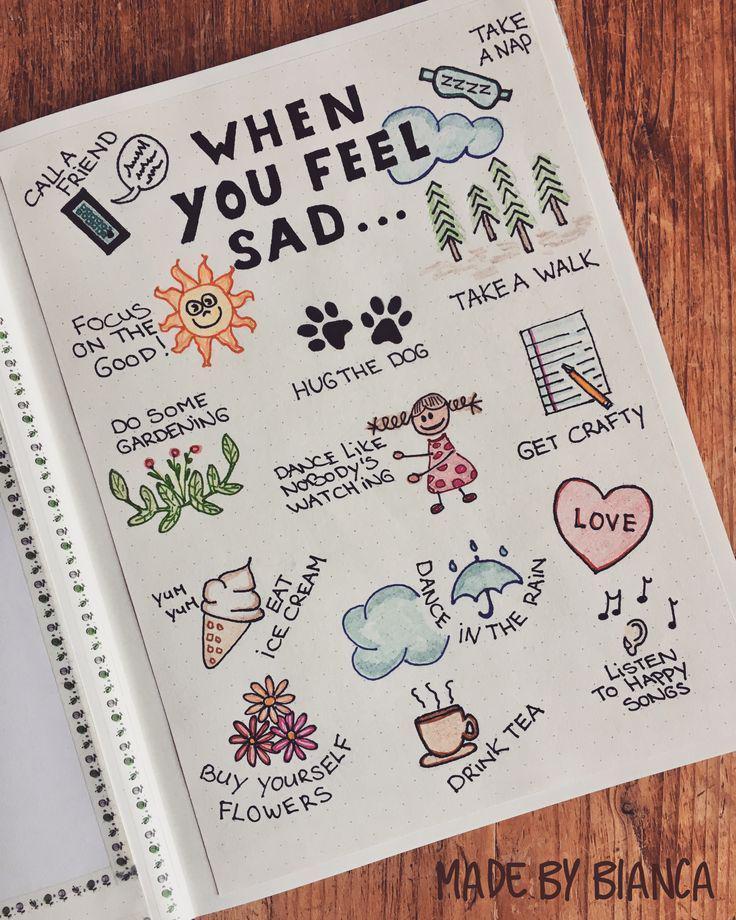 TAKE
A NAP
ZZZZ
CALL A
FRIEND
WHEN
YOU FEEL
SAD...
TAKE A WALK
FOCUS
ON THE
GOOD!
HUG THE DOG
GET CRAFTY
DO SOME
GARDENING
DANCE LIKE
NOBODY'S
WATCHING
LOVE
YUM
YUM
EAT
ICE CREAM
DANCE
IN THE RAIN
LISTEN
TO HAPPY
SONGS
BUY YOURSELF
FLOWERS
DRINK TEA
MADE BY BIANCA